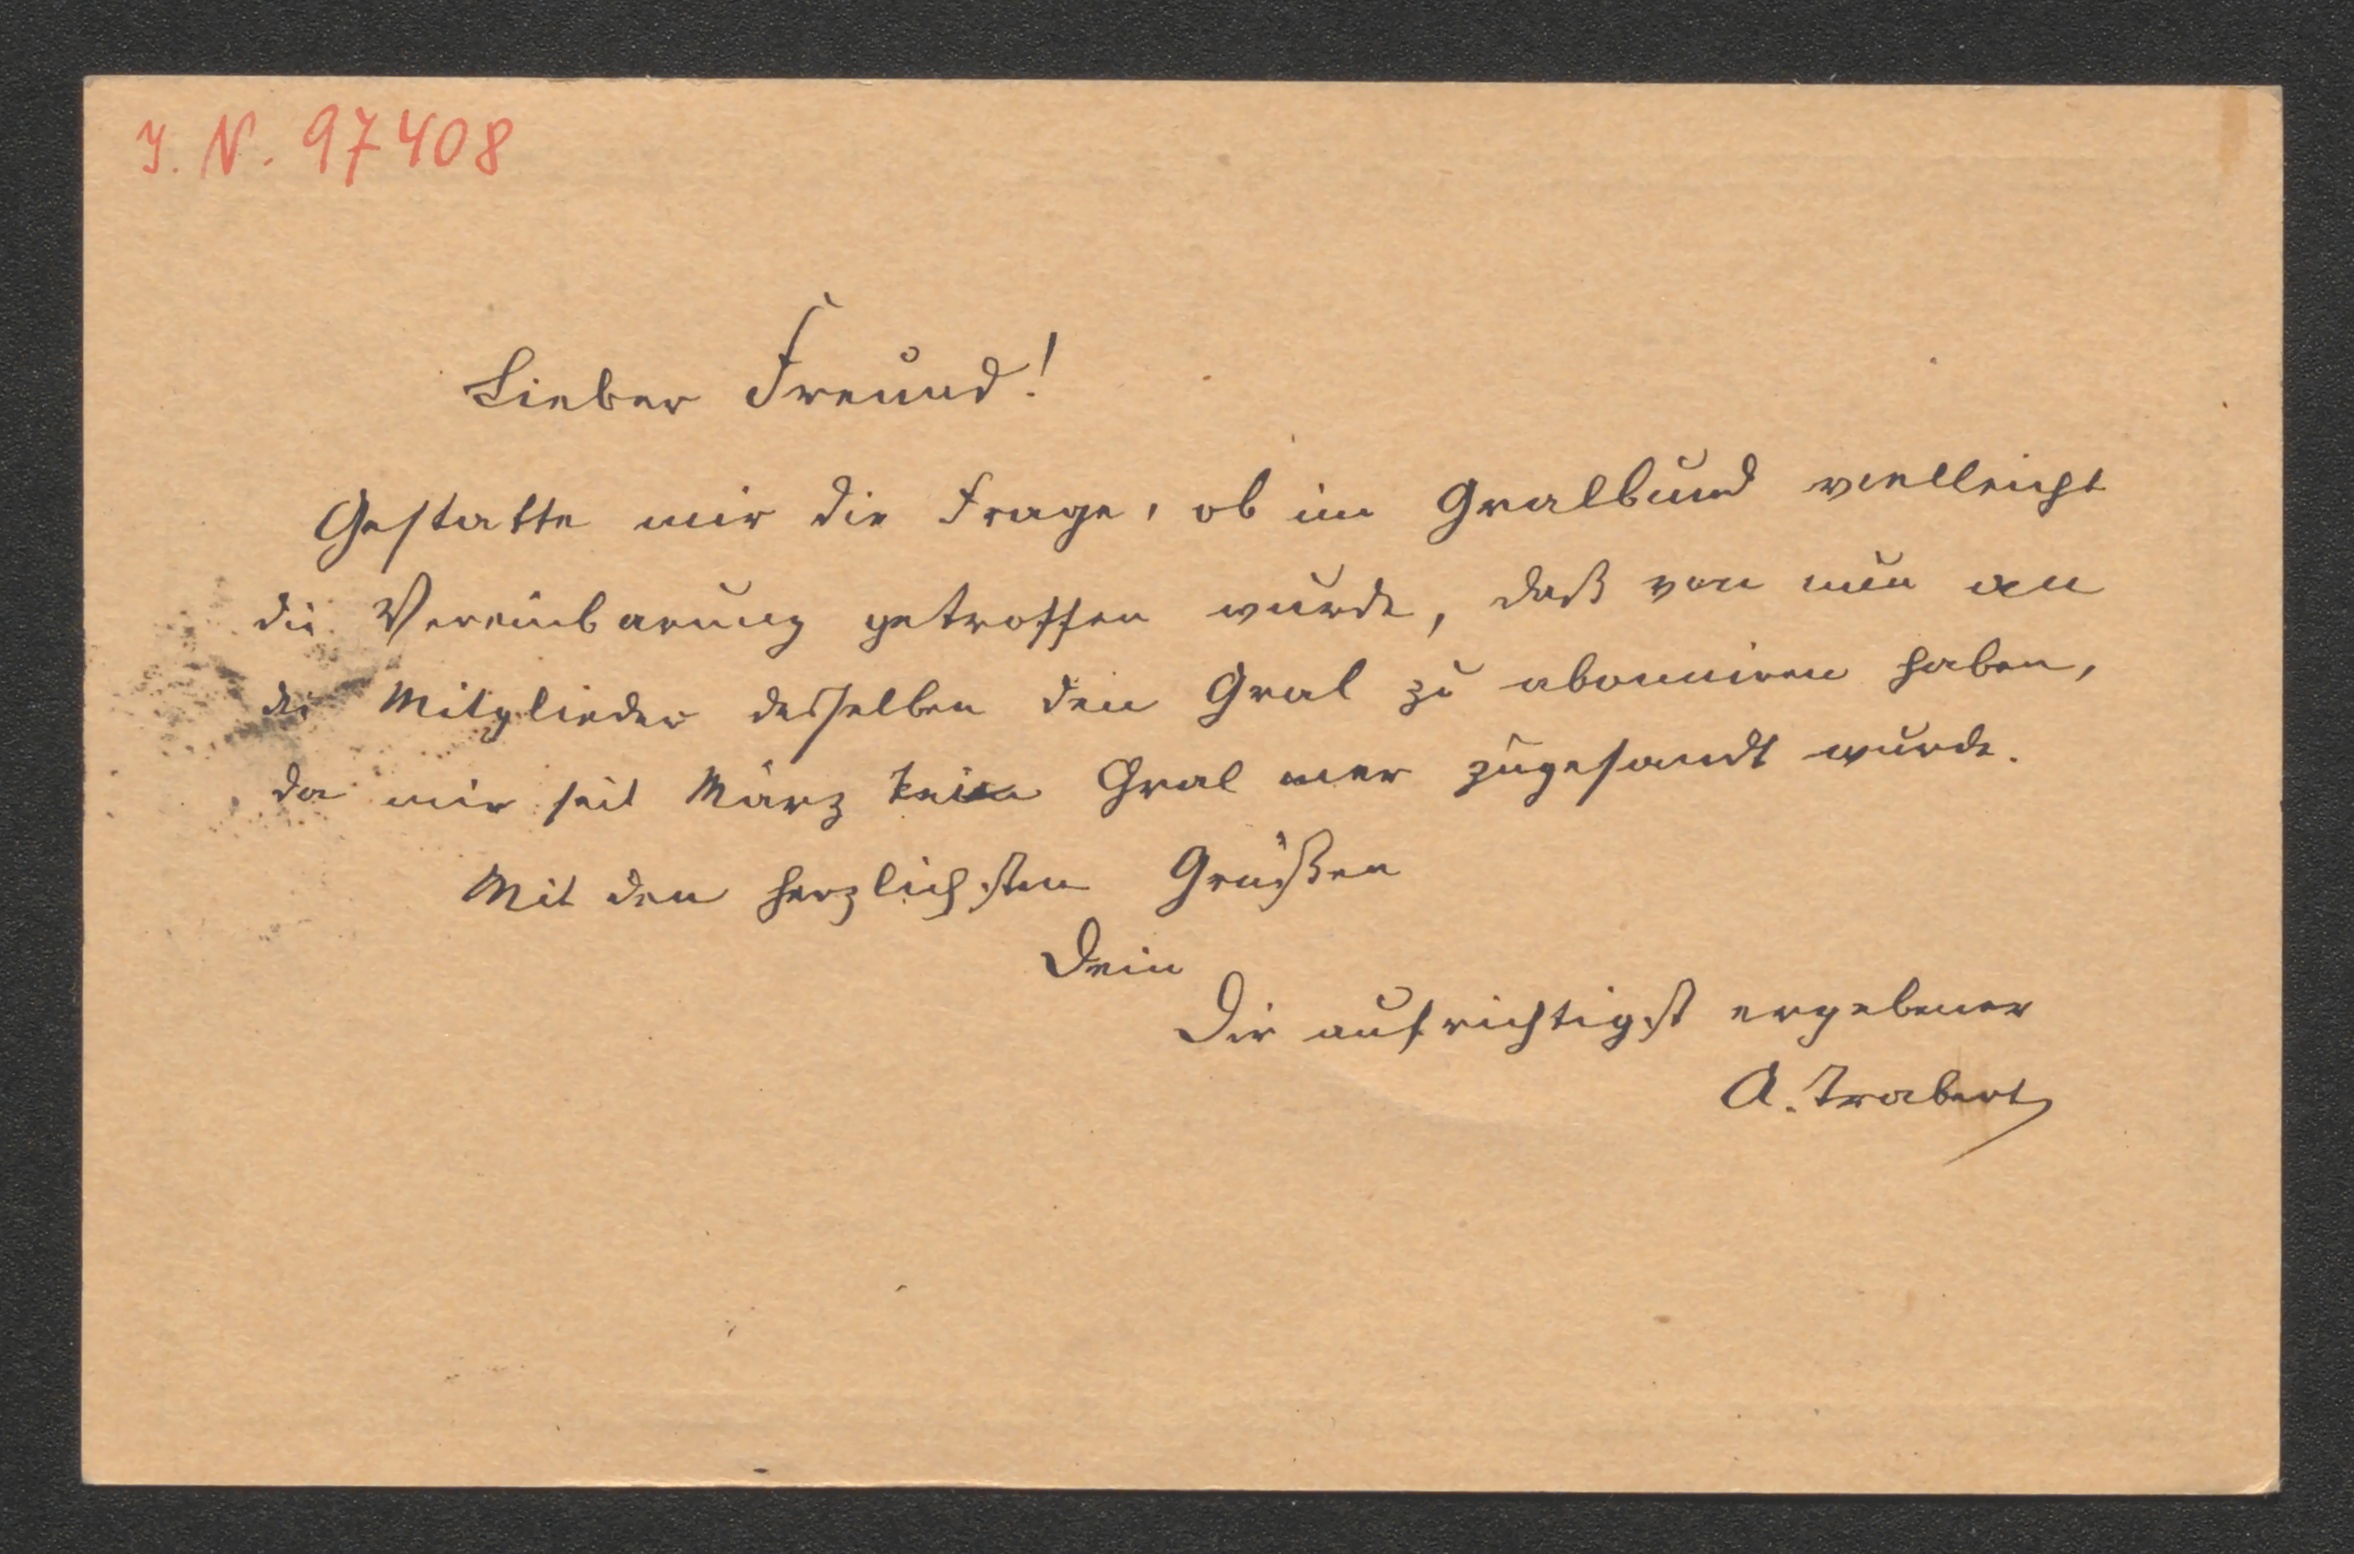 J. N. 97408
Lieber Freund!
Gestatte mir die Frage, ob im Gralbund vielleicht
die Vereinbarung getroffen wurde, daß von nun an
die Mitglieder desselben den Gral zu abonniren haben,
da mir seit März kein Gral mer zugesandt wurde.
Mit den herzlichsten Grüßen
Dein
Dir aufrichtigst ergebener
A. Trabert